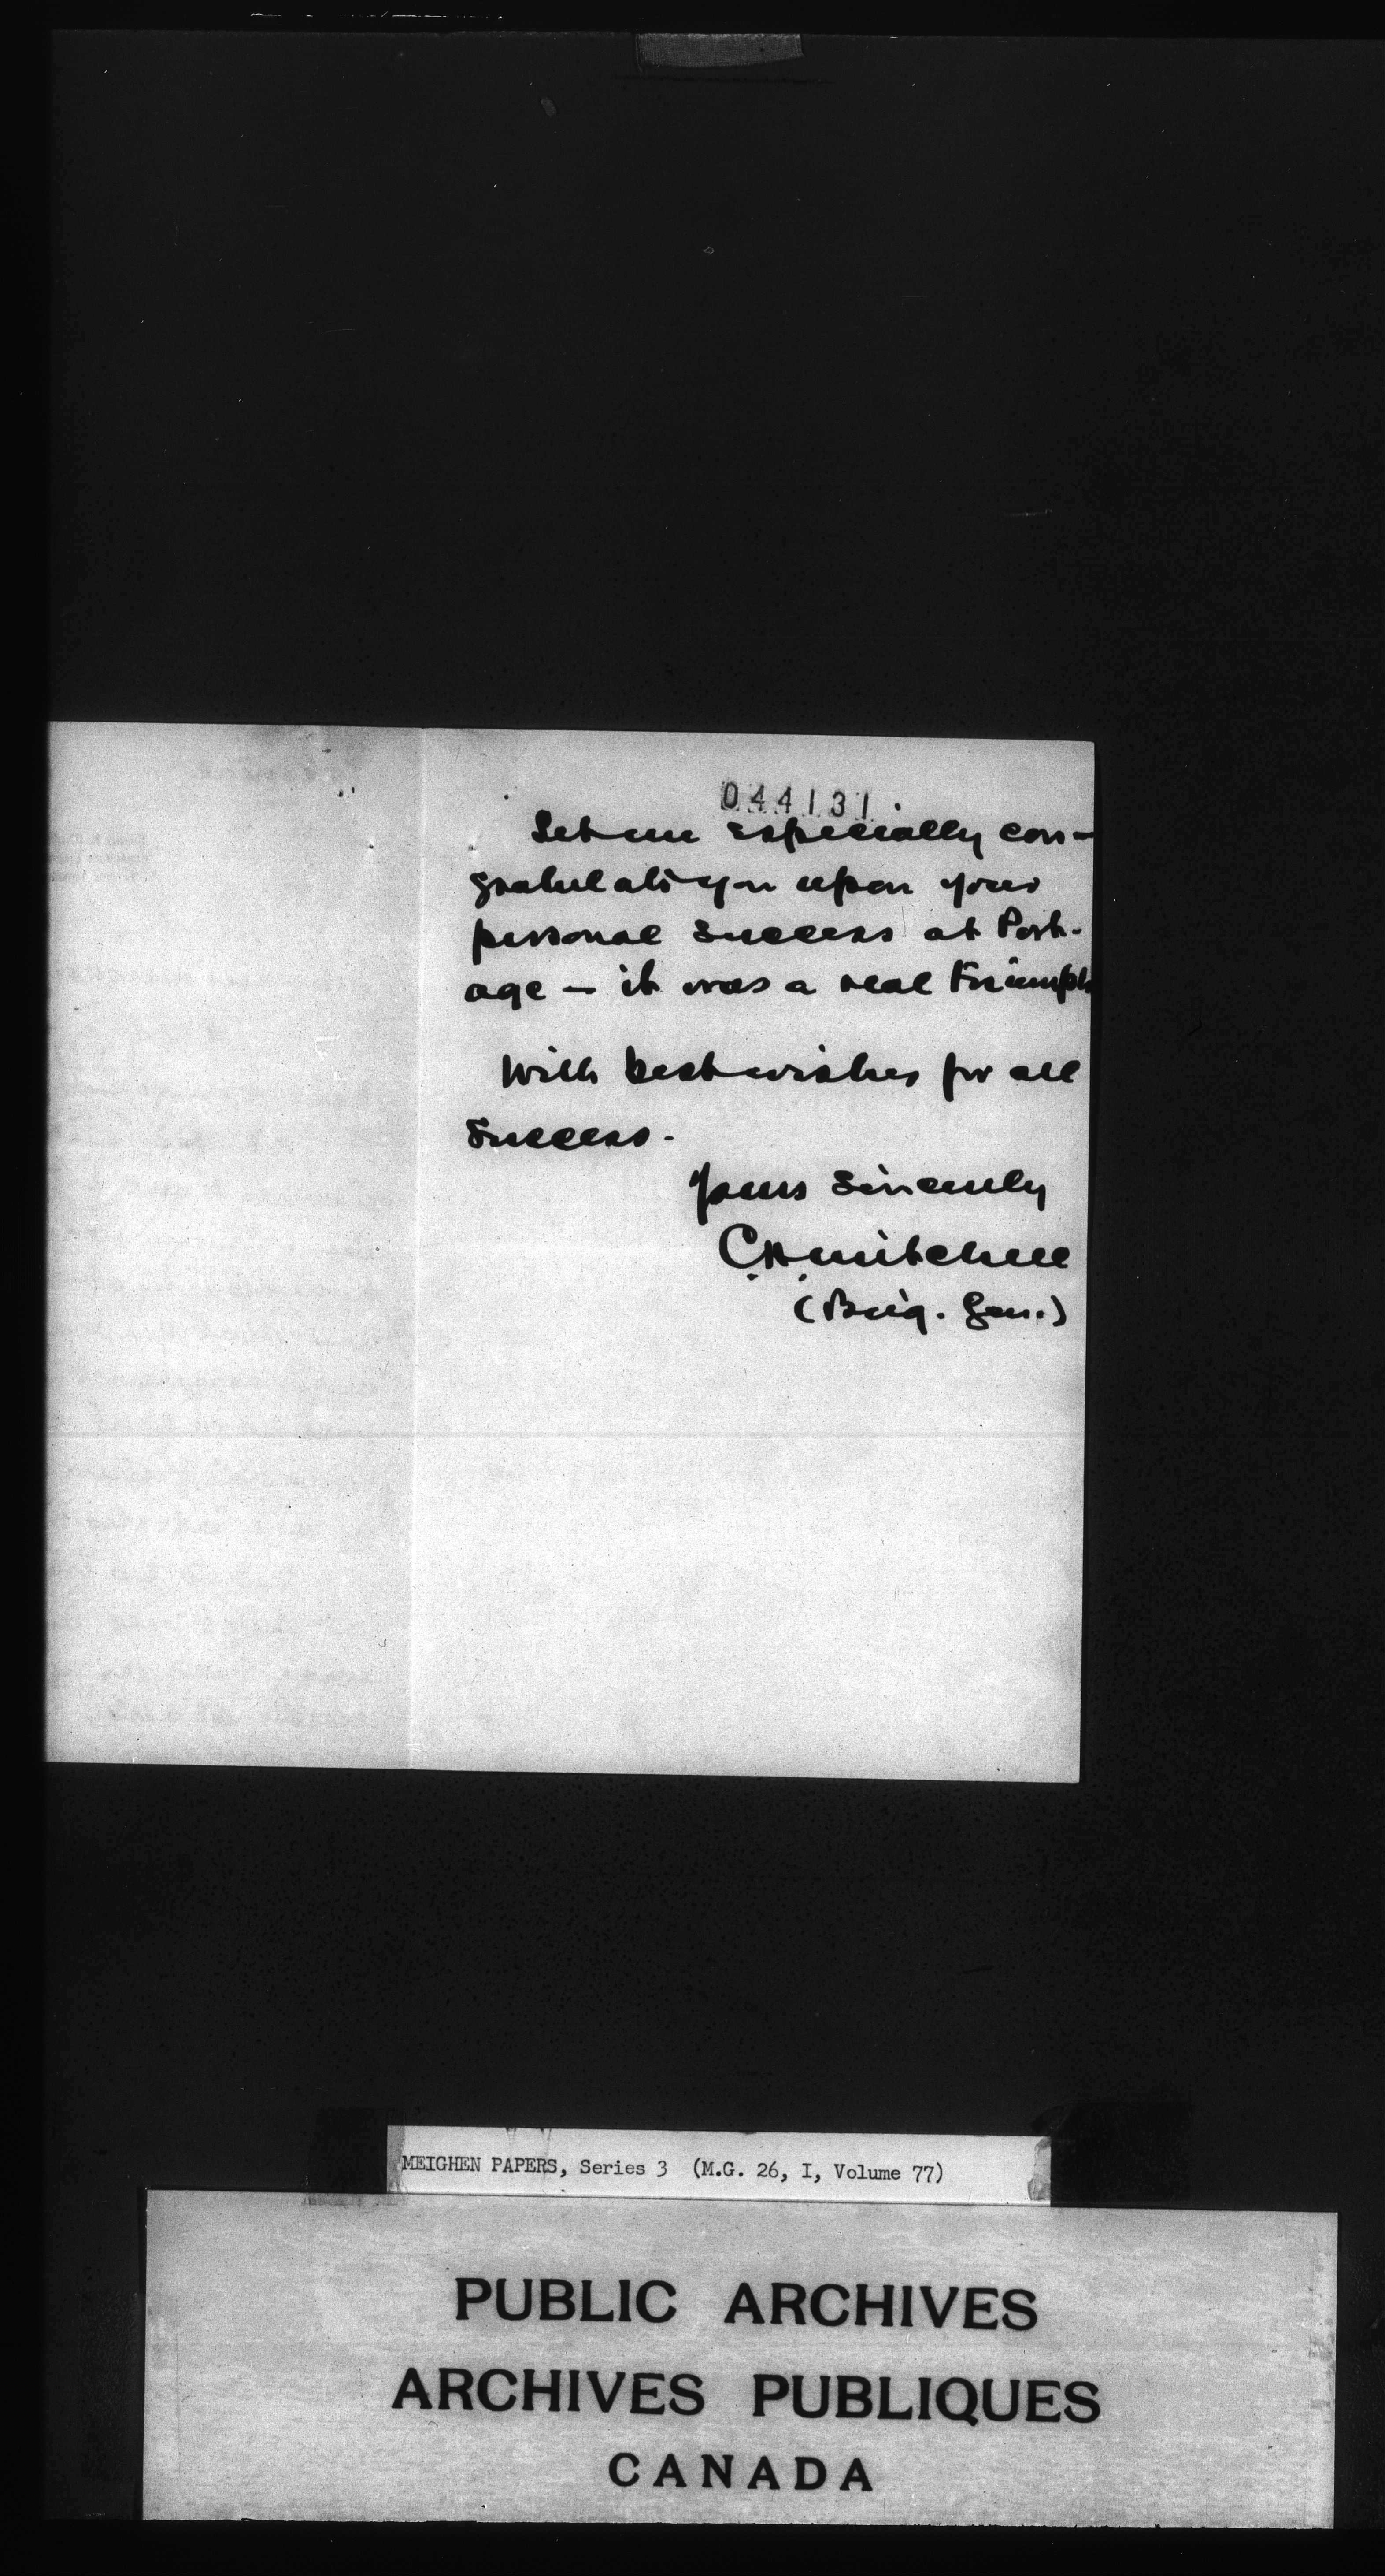 044131
Let me especially con-
gratulate you upon your
personal success at Port-
age — it was a real triumph
With best wishes for all
success.
Yours Sincerely
C.H. Mitchell
(Brig. Gen.)
MEIGHEN PAPERS, Series 3 (M.G. 26, I, Volume 77)
PUBLIC ARCHIVES
ARCHIVES PUBLIQUES
CANADA